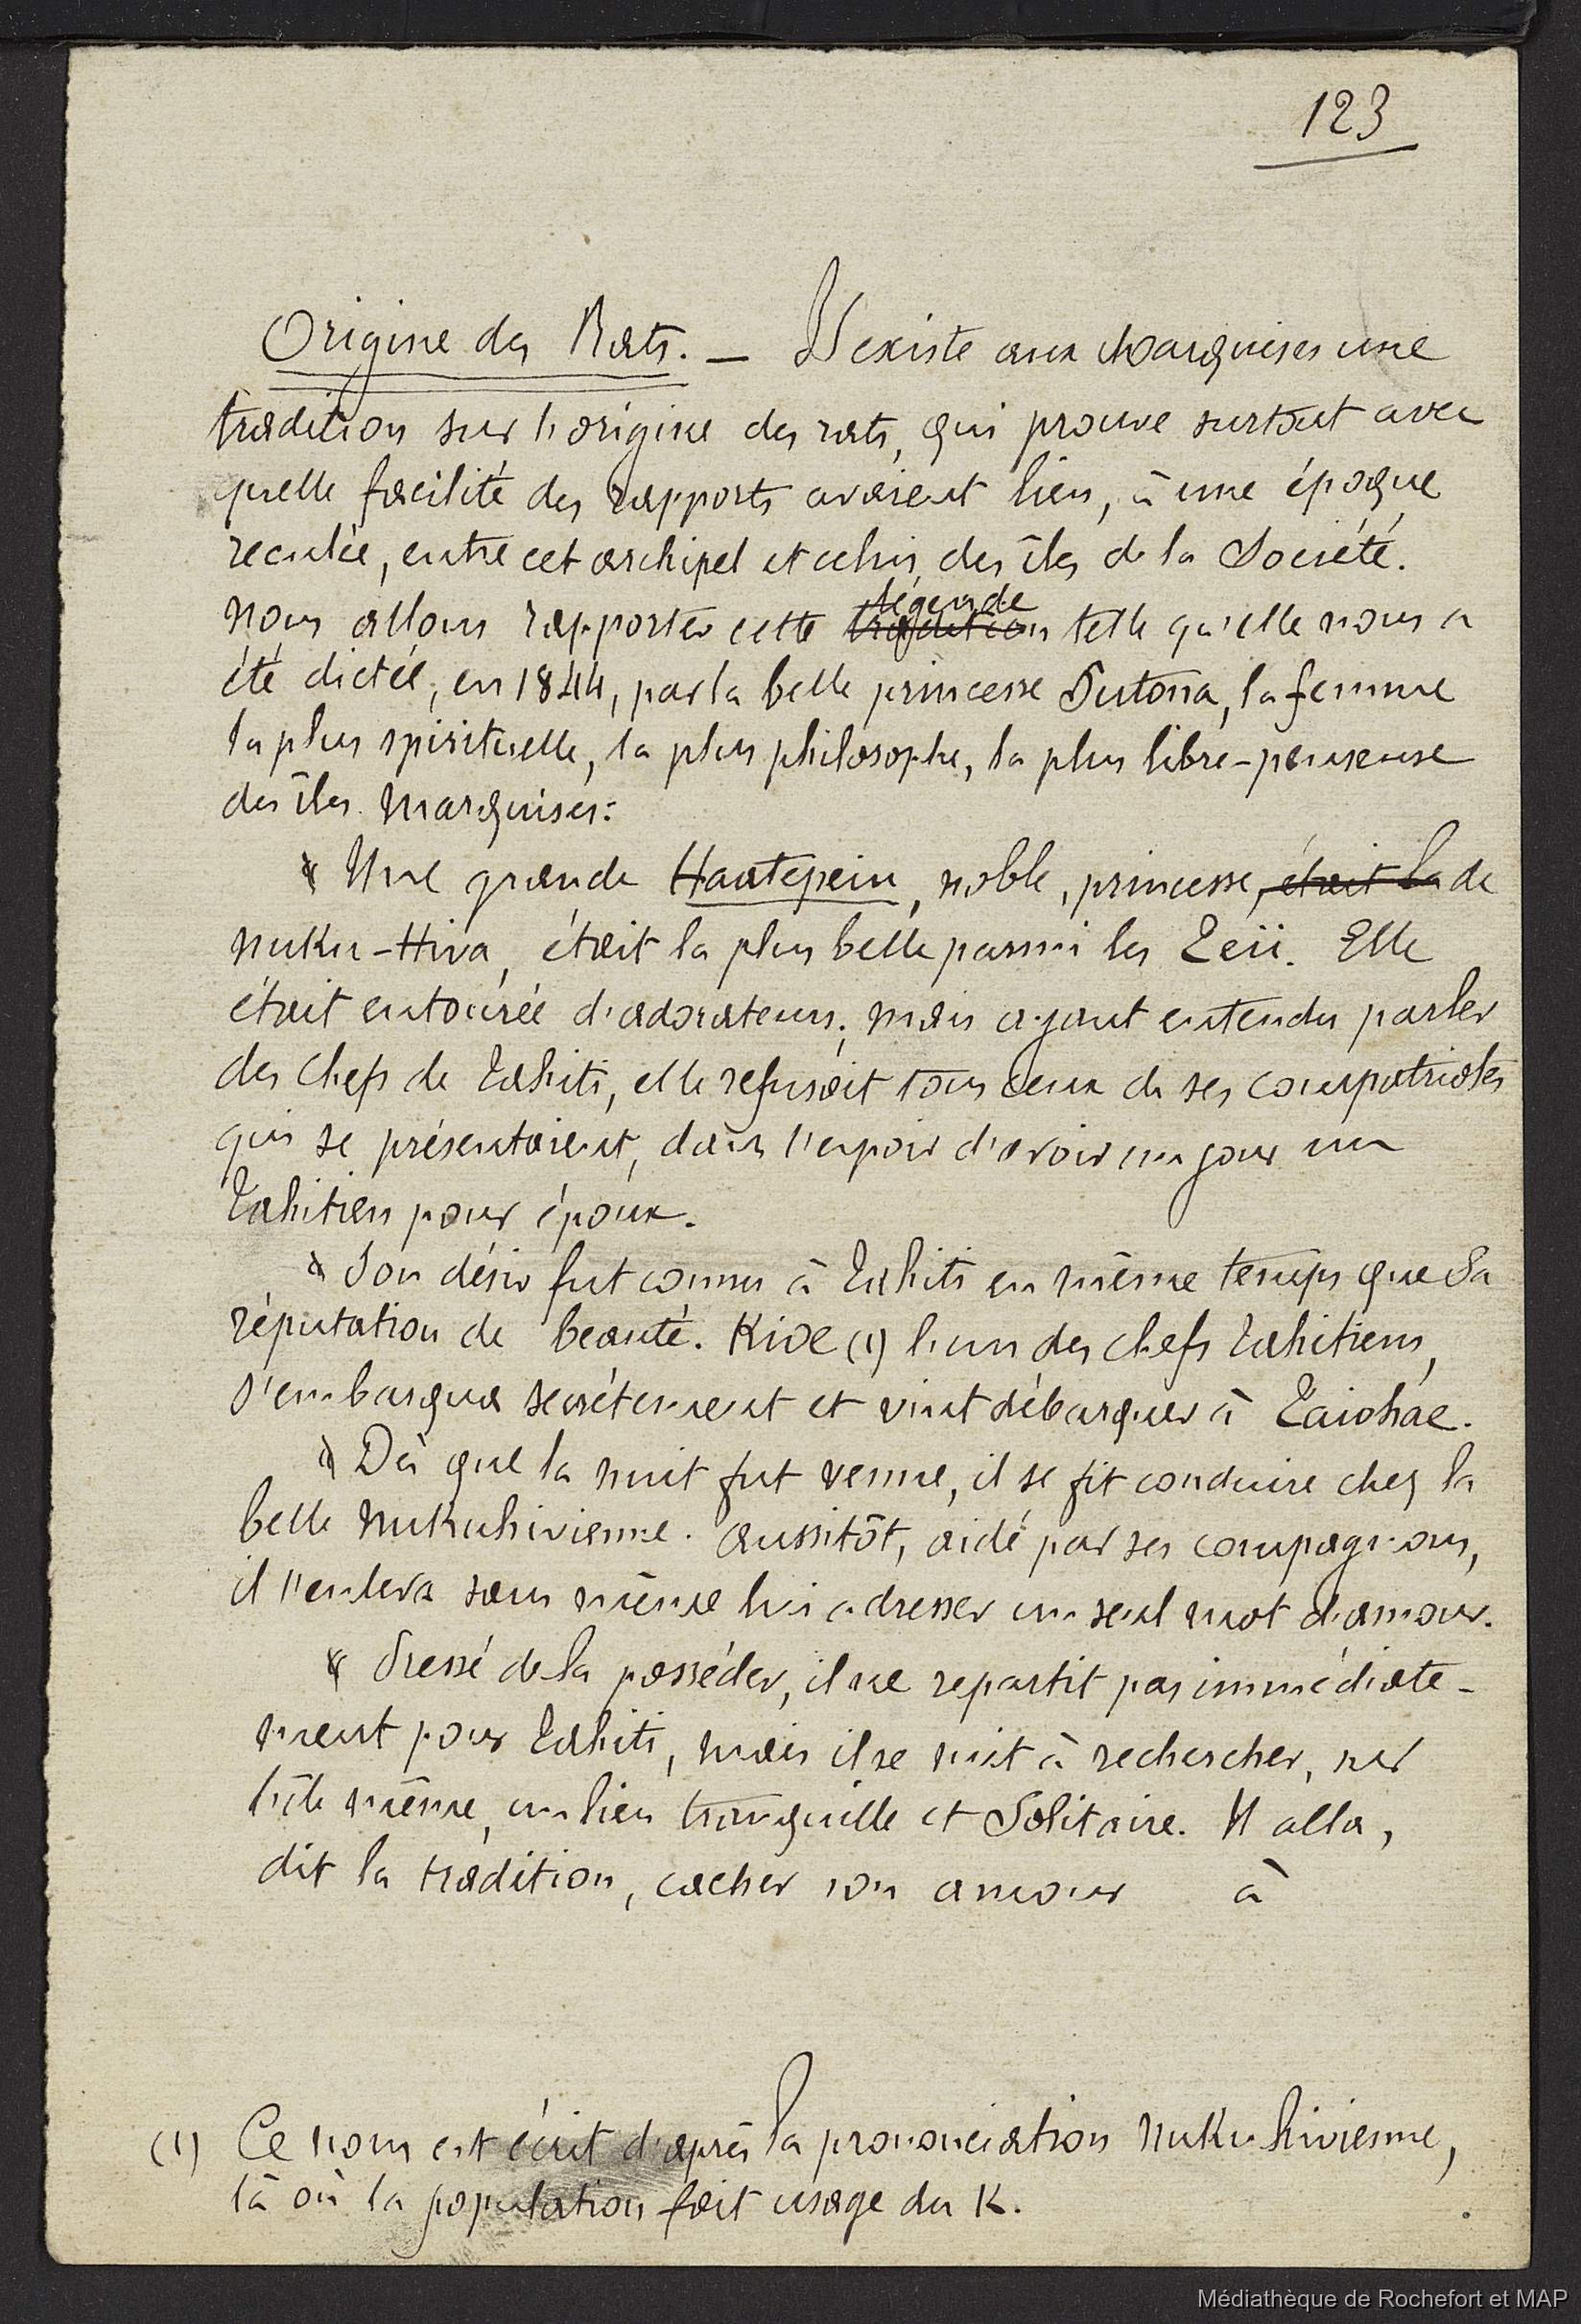 123
Origine des Rats. — Il existe aux Marquises une
tradition sur l'origine des rats, qui prouve surtout avec
quelle facilité des rapports avaient lieu, à une époque
reculée, entre cet archipel et celui des îles de la Société.
Nous allons rapporter cette tradition légende telle qu'elle nous a
été dictée, en 1844, par la belle princesse Tutona, la femme
la plus spirituelle, la plus philosophe, la plus libre-penseuse
des îles Marquises:
« Une grande Haatepeiu, noble, princesse, était la de
Nuku-Hiva, était la plus belle parmi les Teii. Elle
était entourée d'adorateurs; mais ayant entendu parler
des chefs de Tahiti, elle refusait tous ceux de ses compatriotes
qui se présentaient, dans l'espoir d'avoir un jour un
Tahitien pour époux.
« Son désir fut connu à Tahiti en même temps que sa
réputation de beauté. Kioe (1) l'un des chefs tahitiens,
s'embarqua secrétement et vint débarquer à Taiohae.
« Dès que la nuit fut venue, il se fit conduire chez la
belle Nukuhivienne. Aussitôt, aidé par ses compagnons,
il l'enleva sans même lui adresser un seul mot d'amour.
« Pressé de la posséder, il ne repartit pas immédiate-
ment pour Tahiti, mais il se mit à rechercher, sur
l'île même, un lieu tranquille et solitaire. Il alla,
dit la tradition, cacher son amour à
(1) Ce nom est écrit d'après la prononciation Nukuhivienne,
là où la population fait usage du K.
Médiathèque de Rochefort et MAP